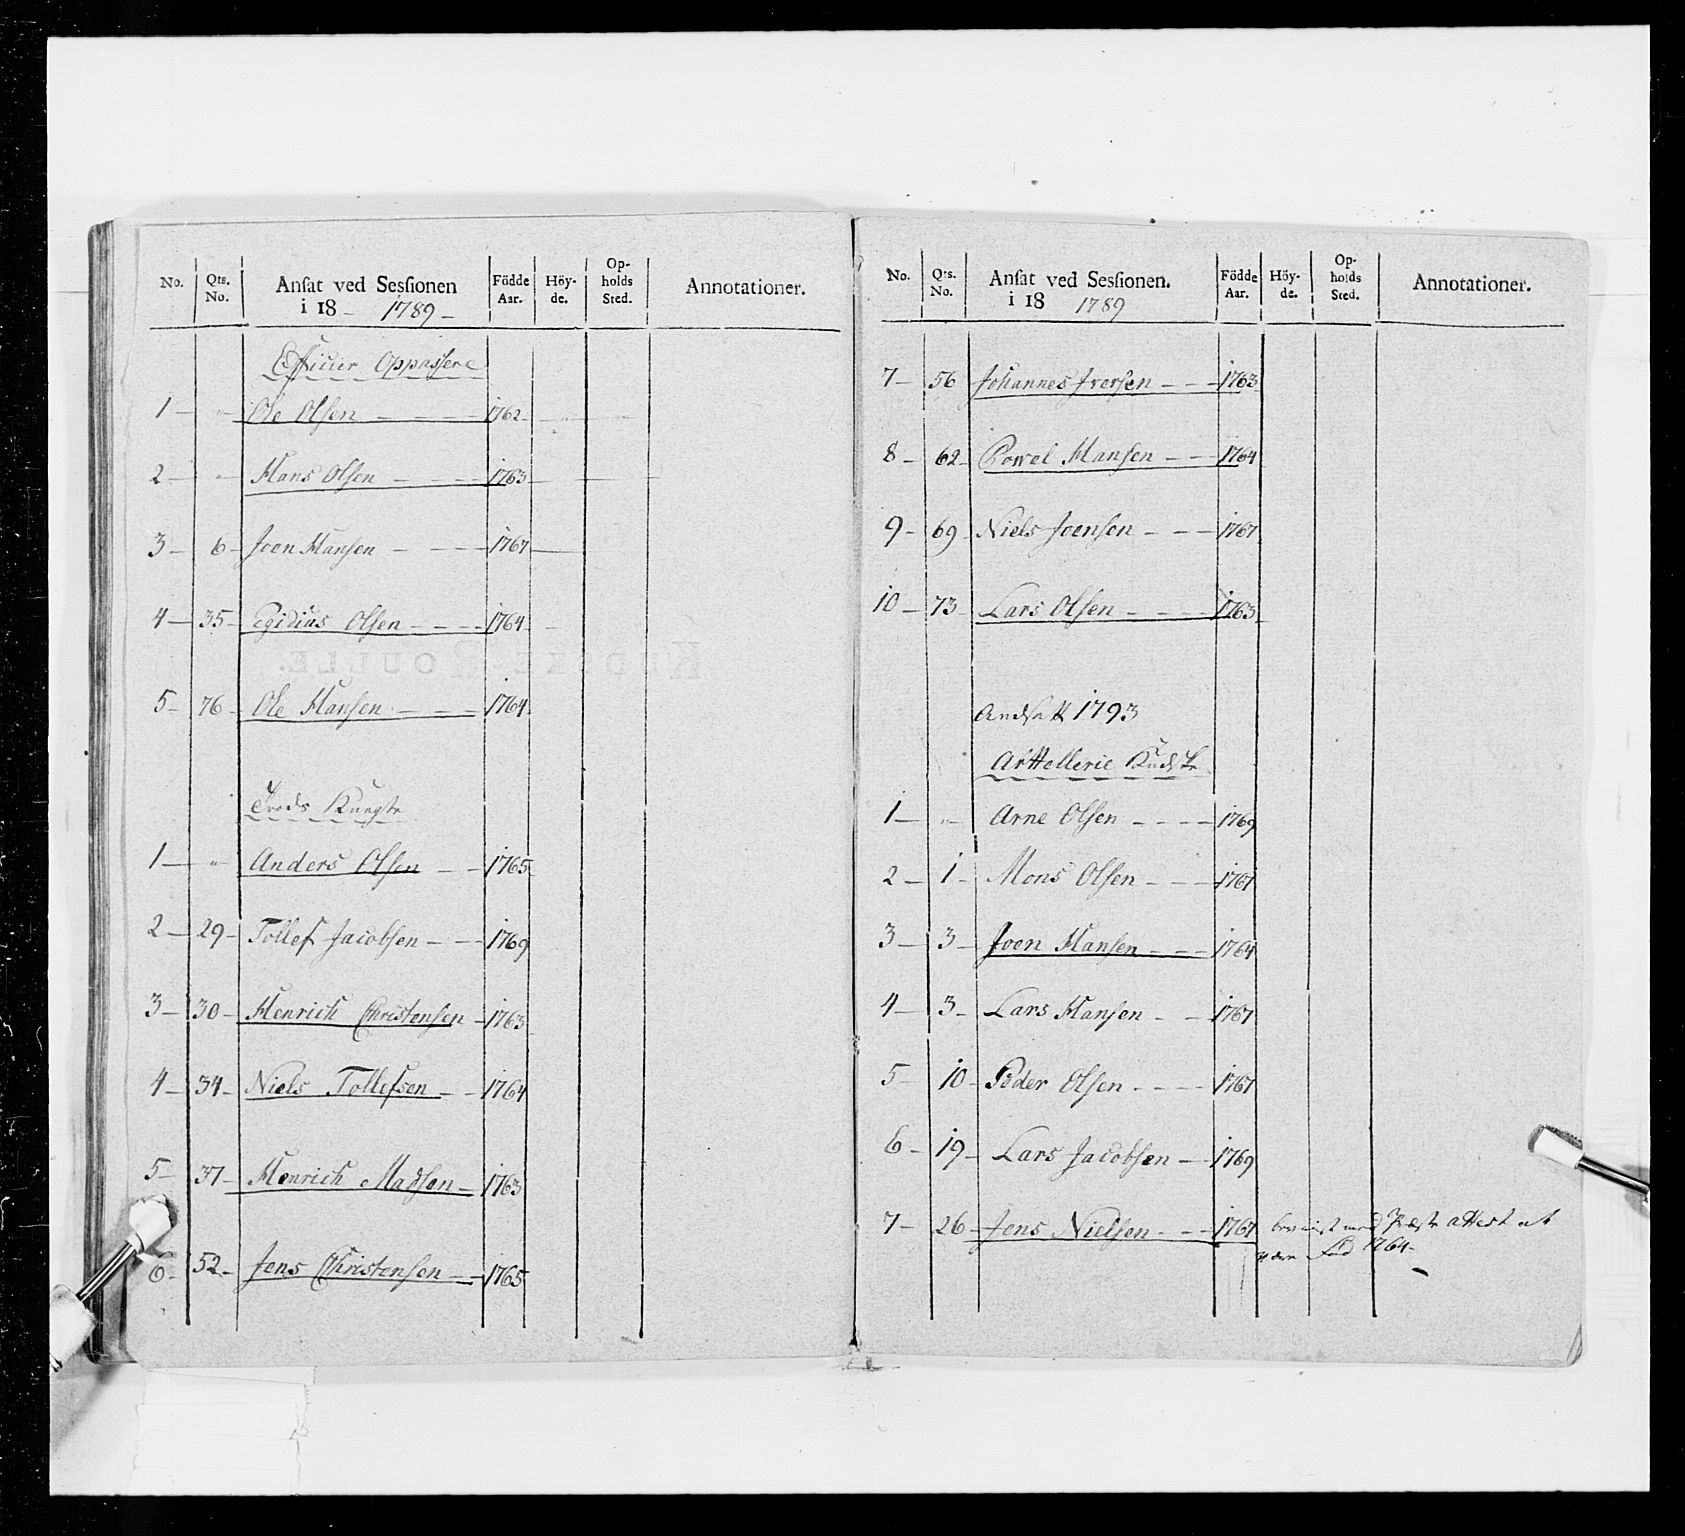 No. Qts. No. Ansat ved Sessionen i 18 - 1789 - Födde Aar. Höyde. Opholds Sted. Annotationer.
Officier Oppassere
1 — " Ole Olsen — 1762
2 — " Hans Olsen — 1763
3 — 6 — Joen Hansen — 1767
4 — 35 — Egidius Olsen — 1764
5 — 76 — Ole Hansen — 1764
KUDSKE-ROULLE.
Trods Kuegte
1 — " Anders Olsen — 1765
2 — 29 — Tollef Jacobsen — 1769
3 — 30 — Henrich Christensen — 1763
4 — 34 — Niels Tollefsen — 1764
5 — 37 — Henrich Madsen — 1763
6 — 52 — Jens Christensen — 1765
No. Qts. No. Ansat ved Sessionen. i 18 1789 Födde Aar. Höyde. Opholds Sted. Annotationer.
7 — 56 Johannes Iversen — 1763
8 — 62 — Powel Hansen — 1764
9 — 69 Niels Joensen — 1767
10 — 73 Lars Olsen — 1763
Andsatt 1793
Arttellerie Kudske
1 — " Arne Olsen — 1769
2 — 1 — Mons Olsen — 1767
3 — 3 — Joen Hansen — 1764
4 — 3 — Lars Hansen — 1767
5 — 10 — Peder Olsen — 1767
6 — 19 — Lars Jacobsen — 1769
7 — 26 — Jens Nielsen — 1767 beviist med Præste attest at
være Fød 1764 —